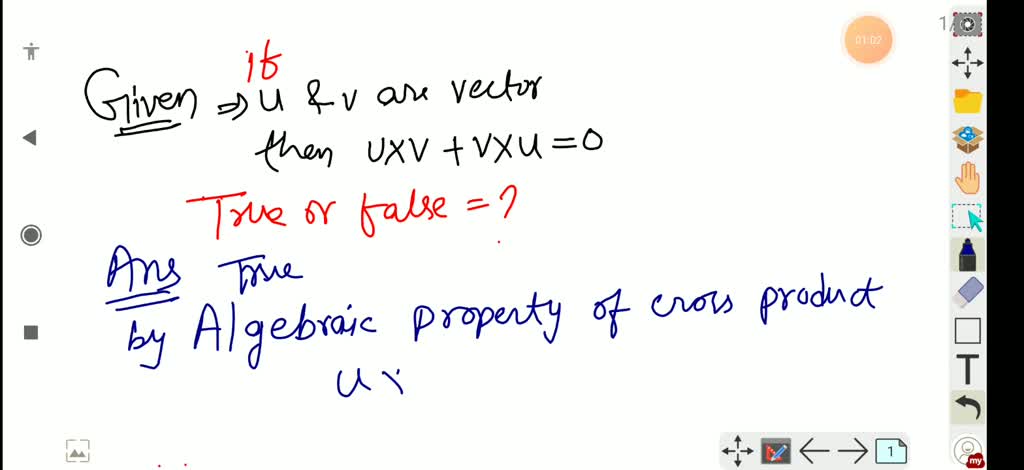 if
Given ⇒ u & v are vector
then UXV + VXU = 0
True or false = ?
Ans True
by Algebraic property of cross product
u x
01:02
1/
T
1
my